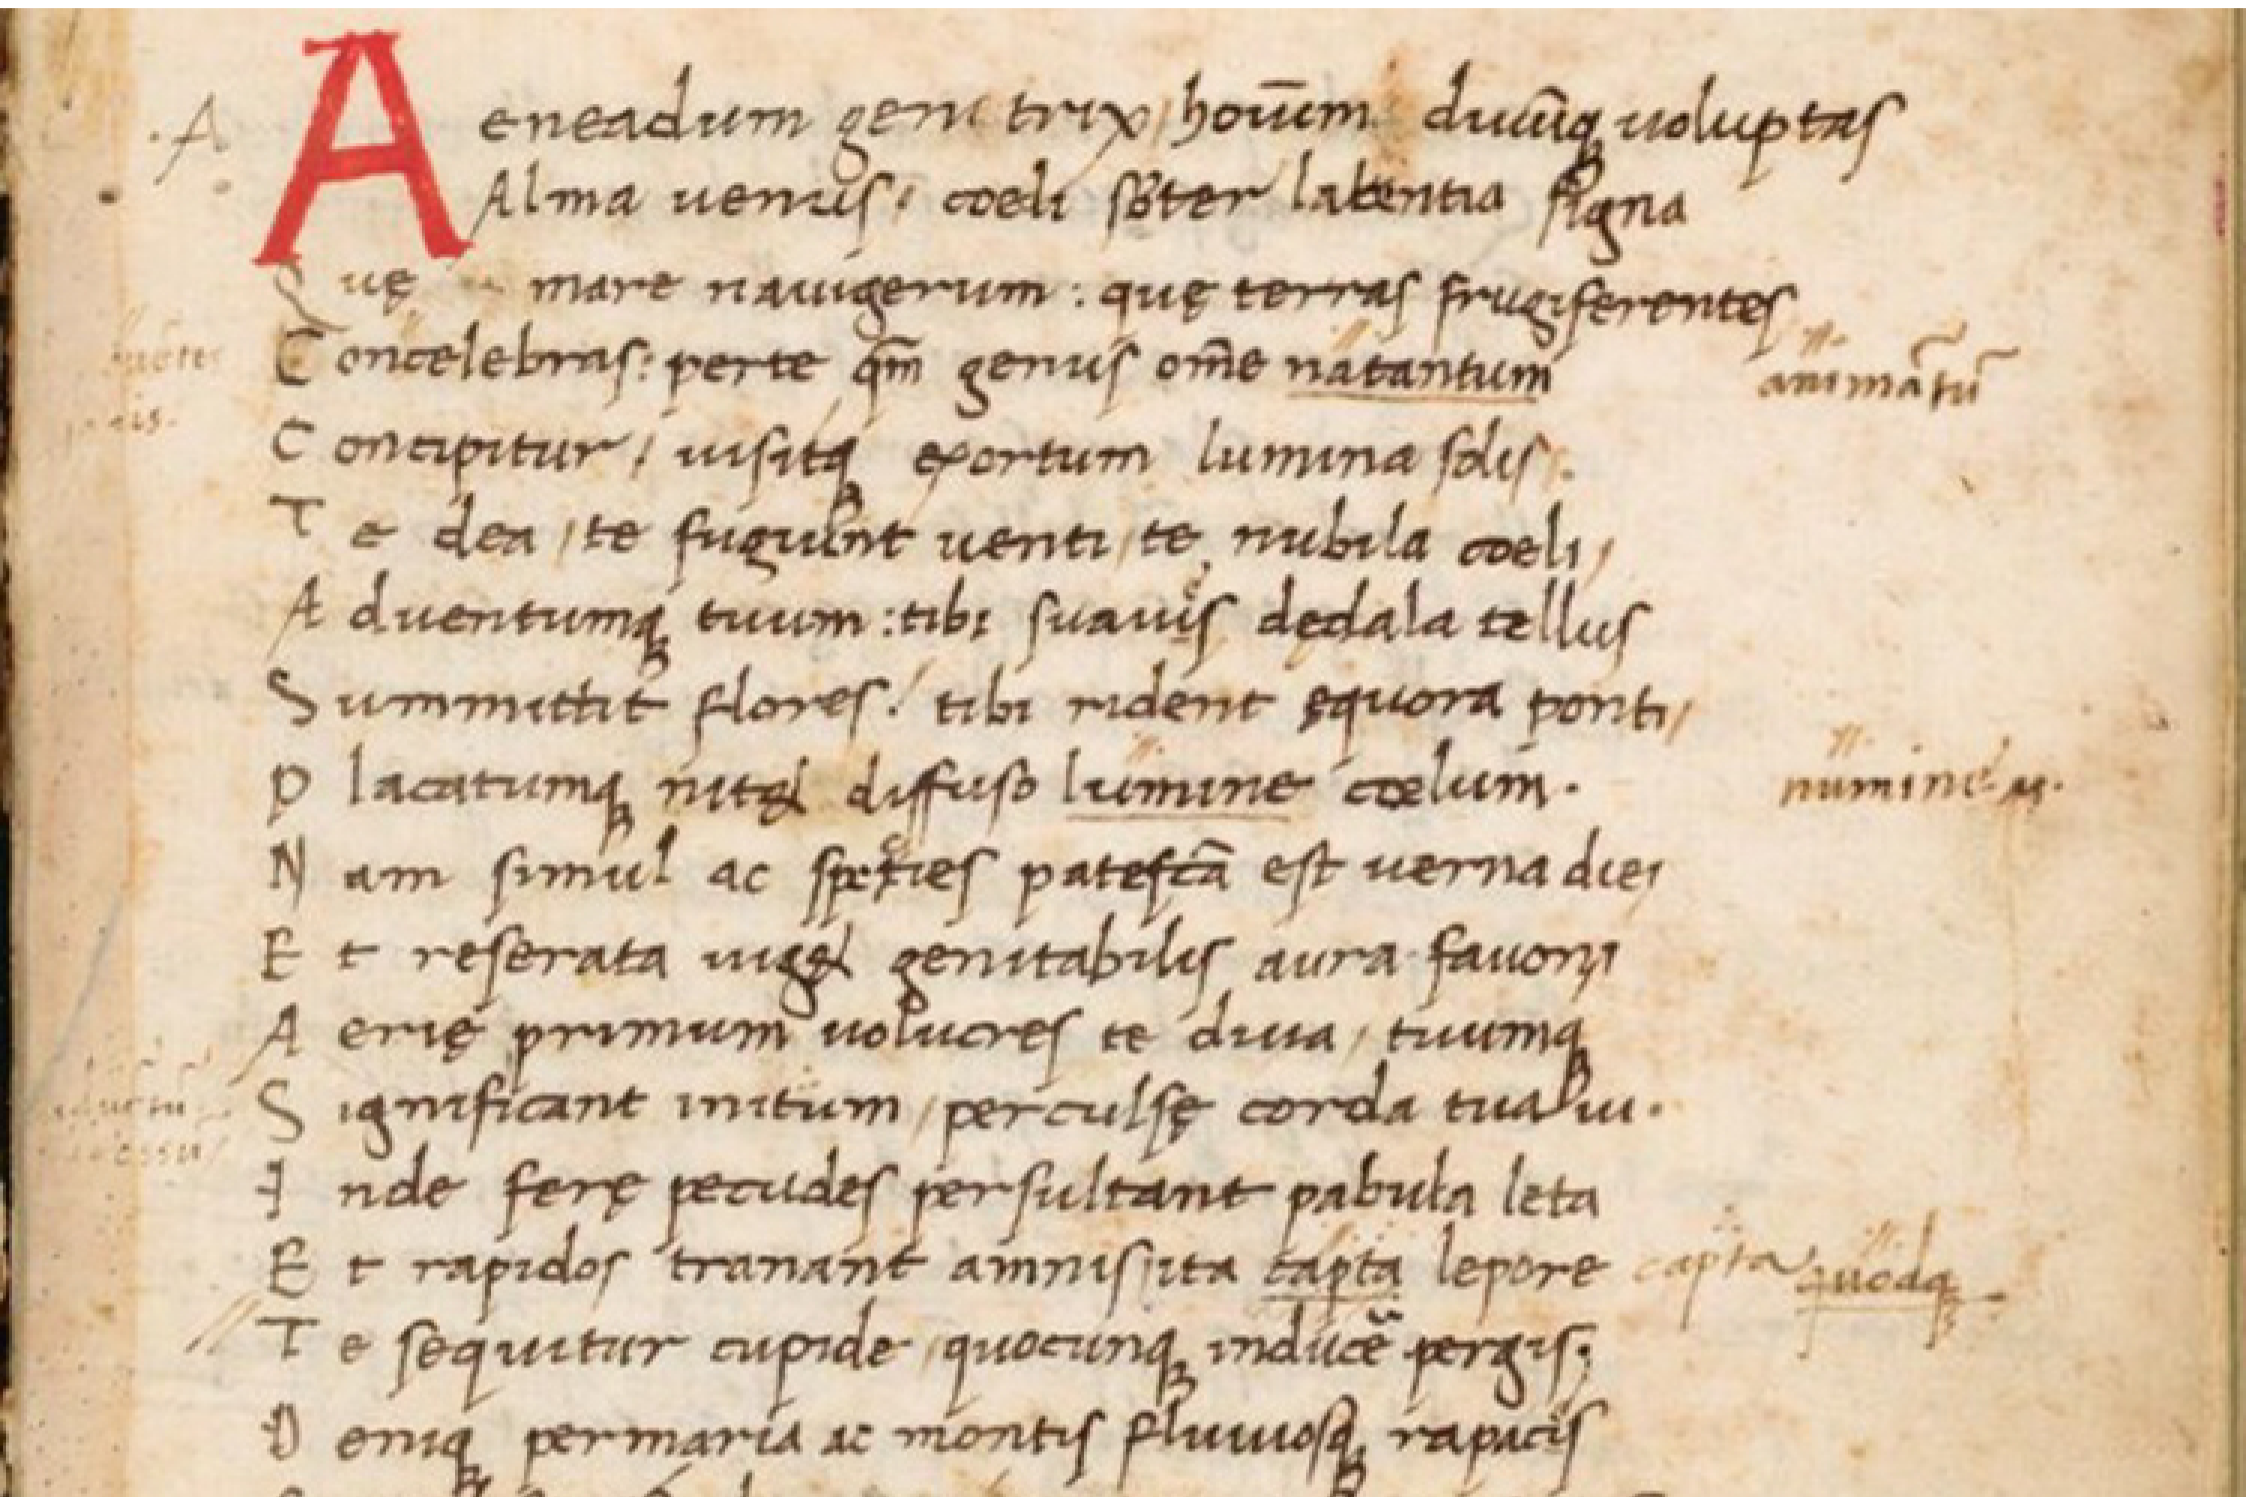 A Aeneadum genitrix, hoīum diuūq; uoluptas
Alma uenus, coeli subter labentia signa
Quę mare nauigerum: quę terras frugiferentes
Concelebras: perte qm̄ genus om̄e natantum animātū
Concipitur, uisitq; exortum lumina solis.
Te dea, te fugiunt uenti, te nubila coeli,
Aduentumq; tuum: tibi suauis dędala tellus
Summittit flores: tibi rident ęquora ponti,
Placatumq; nitęt diffuso lumine coelum. numine
Nam simul ac species patefcā est uerna diei
Et reserata uigęt genitabilis aura fauoni
Aerię primum uolucres te diua, tuumq;
Significant initum, perculsę corda tua ui.
Inde ferę pecudes persultant pabula leta
Et rapidos tranant amnis, ita capta lepore capta quodq;
Te sequitur cupide, quocunq; inducē pergis;
Deniq; permaria ac montis fluuiosq; rapacis